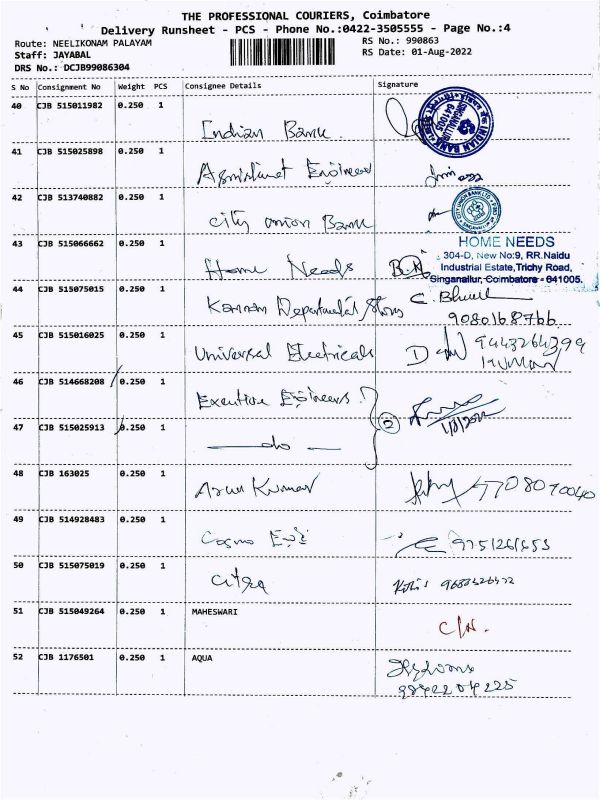 THE PROFESSIONAL COURIERS, Coimbatore
Delivery Runsheet - PCS - Phone No.:0422-3505555 - Page No.:4
Route: NEELIKONAM PALAYAM
Staff: JAYABAL
DRS No.: DCJB99086304
RS No.: 990863
RS Date: 01-Aug-2022
S No Consignment No Weight PCS Consignee Details Signature
40 CJB 515011982 0.250 1
Indian Bank
INDIAN BANK
SINGANALLUR
641005
41 CJB 515025898 0.250 1
Assistant Engineer
42 CJB 513740882 0.250 1
City Union Bank
CITY UNION BANK LTD
43 CJB 515066662 0.250 1
Home Needs
HOME NEEDS
304-D, New No:9, RR.Naidu
Industrial Estate,Trichy Road,
Singanallur, Coimbatore - 641005.
44 CJB 515075015 0.250 1
Kannan Departmental Store
9080168766
45 CJB 515016025 0.250 1
Universal Electricals
9443264399
Kumar
46 CJB 514668208 0.250 1
Executive Engineers
47 CJB 515025913 0.250 1
do
2
1/8/2022
48 CJB 163025 0.250 1
Arun Kumar
7708070040
49 CJB 514928483 0.250 1
Cosmo
9751261653
50 CJB 515075019 0.250 1
51 CJB 515049264 0.250 1 MAHESWARI
C/N.
52 CJB 1176501 0.250 1 AQUA
9842204225